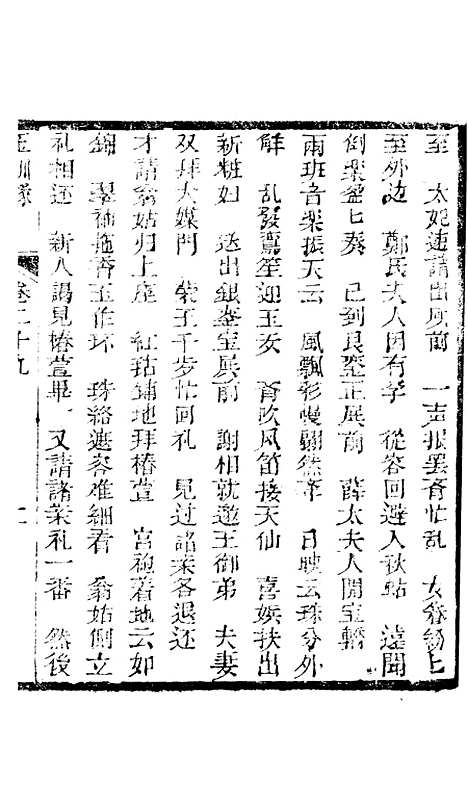 至　太妃速請出厥前　一声报罢斉忙乱　女眷纷上
至外边　鄭氏夫人因有孝　從容回避入秋㸃　遠聞
倒樂釜七奏　已到良*正展前　薛太夫人開宝轎
兩班音樂振天云　風飄彩幔翩然*　日映云珠分外
鮮　乱發鸞笙迎玉女　斉吹凤笛接天仙　喜娱扶出
新粧妇　送出銀*宝展前　謝相就邀王御弟　夫妻
双拜大媒門　*王千歩忙回礼　見过諸來各退还
才請翁姑归上座　红毡铺地拜椿萱　宫袍着地云如
錦　翠袖拖香玉作环　珠絡遮容难細看　翁姑侧立
礼相还　新人謁見椿萱畢　又請諸亲礼一番　然後
玉釧缘　卷二十九